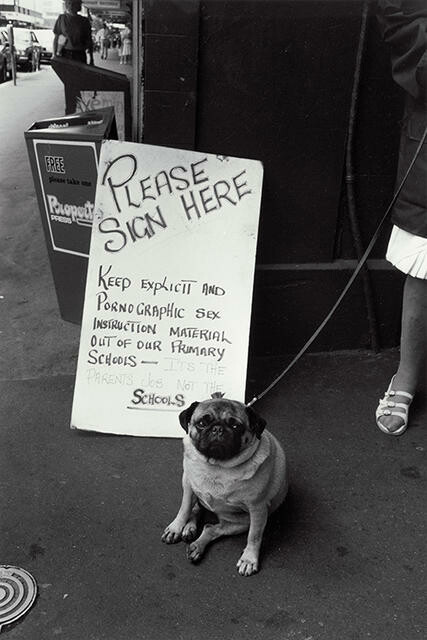 FREE
please take one
Property
PRESS
PLEASE
SIGN HERE
KEEP EXPLICIT AND
PORNOGRAPHIC SEX
INSTRUCTION MATERIAL
OUT OF OUR PRIMARY
SCHOOLS — ITS THE
PARENTS JOB NOT THE
SCHOOLS